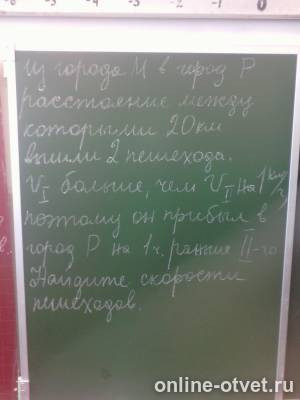 Из города М в город Р
расстояние между
которыми 20 км
вышли 2 пешехода.
V I больше, чем V I на 1 км/ч,
поэтому он прибыл в
город Р на 1 ч. раньше II-го
Найдите скорости
пешеходов.
online-otvet.ru